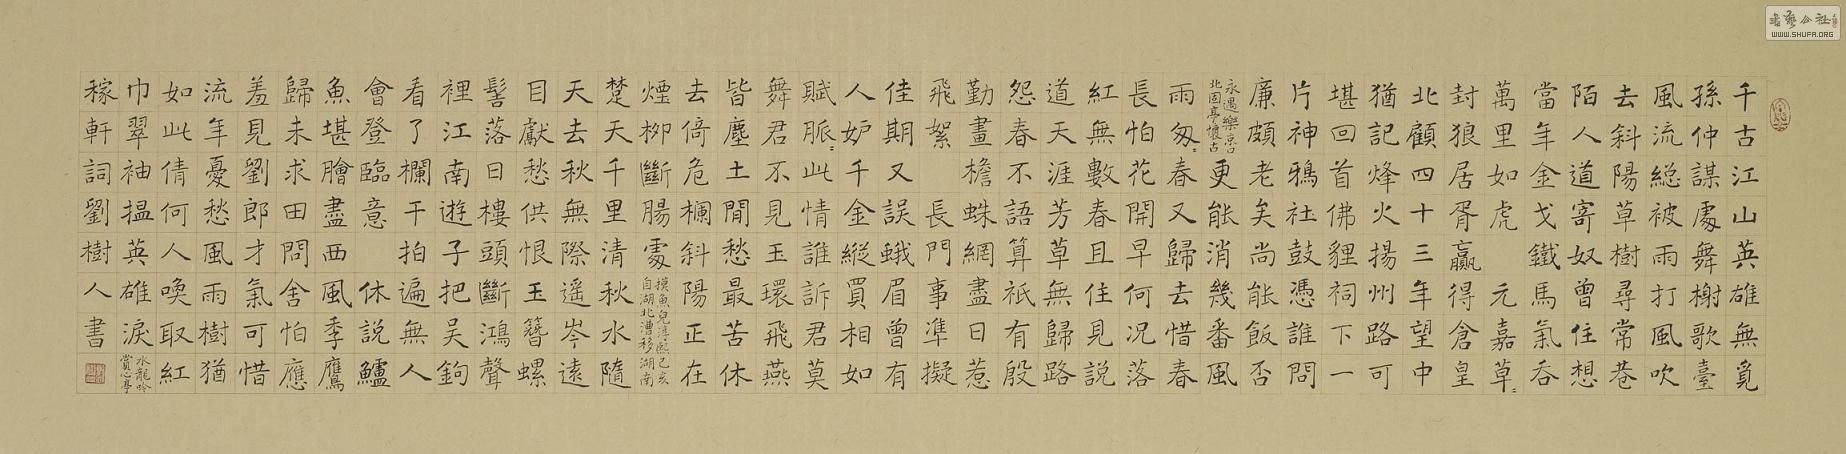 千古江山英雄無覓
孫仲謀處舞榭歌臺
風流総被雨打風吹
去斜陽草樹尋常巷
陌人道寄奴曾住想
當年金戈鐵馬氣吞
萬里如虎 元嘉草〻
封狼居胥贏得倉皇
北顧四十三年望中
猶記烽火揚州路可
堪回首佛貍祠下一
片神鴉社鼓憑誰問
廉頗老矣尚能飯否
永遇樂京口
北固亭懷古
更能消幾番風
雨匆〻春又歸去惜春
長怕花開早何況落
紅無數春且住見說
道天涯芳草無歸路
怨春不語算祇有殷
勤畫檐蛛網盡日惹
飛絮 長門事準擬
佳期又誤蛾眉曾有
人妒千金縱買相如
賦脈〻此情誰訴君莫
舞君不見玉環飛燕
皆塵土閒愁最苦休
去倚危欄斜陽正在
煙柳斷腸處
摸魚兒淳熙己亥
自湖北漕移湖南
楚天千里清秋水隨
天去秋無際遙岑遠
目獻愁供恨玉簪螺
髻落日樓頭斷鴻聲
裡江南遊子把吳鉤
看了欄干拍遍無人
會登臨意 休說鱸
魚堪膾盡西風季鷹
歸未求田問舍怕應
羞見劉郎才氣可惜
流年憂愁風雨樹猶
如此倩何人喚取紅
巾翠袖揾英雄淚
水龍吟
賞心亭
稼軒詞劉樹人書
書藝公社
WWW.SHUFA.ORG